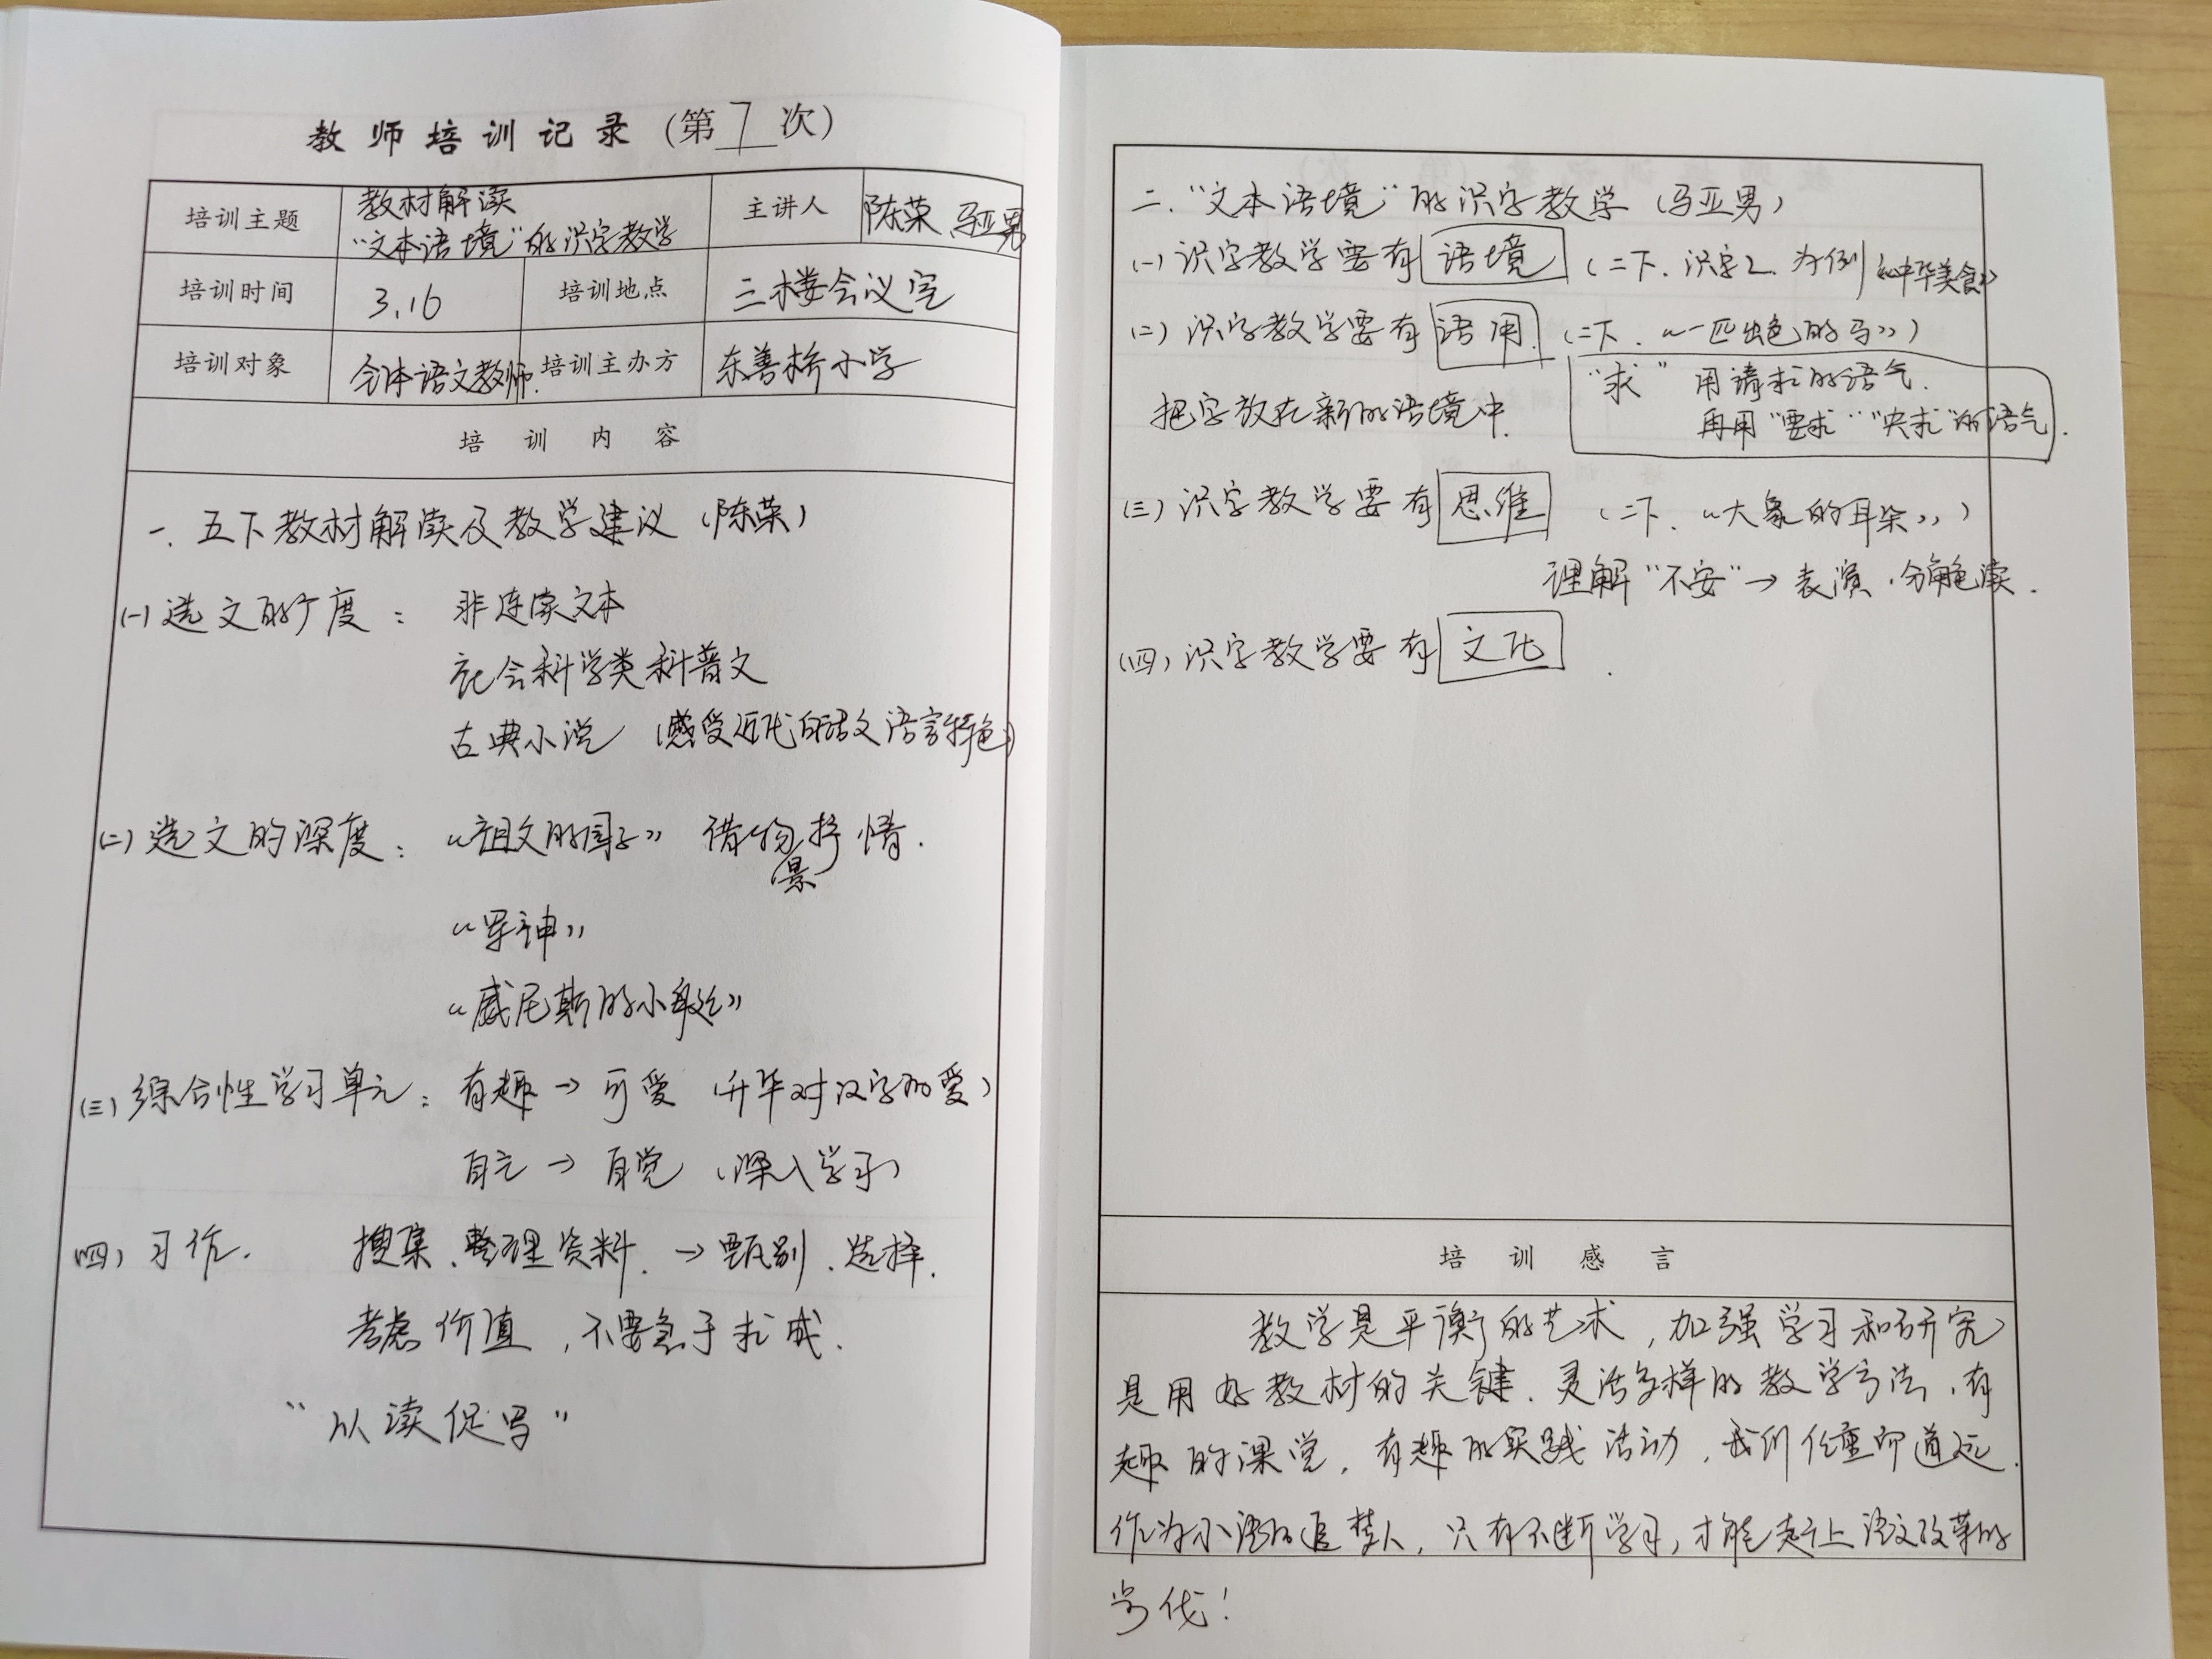 教师培训记录（第 7 次）
培训主题 教材解读 “文本语境”的识字教学 主讲人 陈荣、马亚男
培训时间 3.16 培训地点 三楼会议室
培训对象 全体语文教师. 培训主办方 东善桥小学
培训内容
一. 五下教材解读及教学建议（陈荣）
(一) 选文的广度： 非连续文本
社会科学类科普文
古典小说（感受近代白话文语言特色）
(二) 选文的深度： 《祖父的园子》 借物抒情.
（景
《军神》
《威尼斯的小艇》
(三) 综合性学习单元： 有趣→可爱（升华对汉字的爱）
自主→自觉（深入学习）
(四) 习作. 搜集、整理资料. →甄别、选择.
考虑价值，不要急于求成.
“以读促写”
二. “文本语境”的识字教学（马亚男）
(一) 识字教学要有 语境 （二下. 识字2. 为例《中华美食》
(二) 识字教学要有 语用. （二下. 《一匹出色的马》）
“求” 用请求的语气.
把字放在新的语境中. 再用“要求”“央求”的语气.
(三) 识字教学要有 思维 （二下. 《大象的耳朵》）
理解“不安”→表演、分角色读.
(四) 识字教学要有 文化.
培训感言
教学是平衡的艺术，加强学习和研究
是用好教材的关键. 灵活多样的教学方法、有
趣的课堂，有趣的实践活动，我们任重而道远.
作为小语的追梦人，只有不断学习，才能赶上语文改革的
步伐！